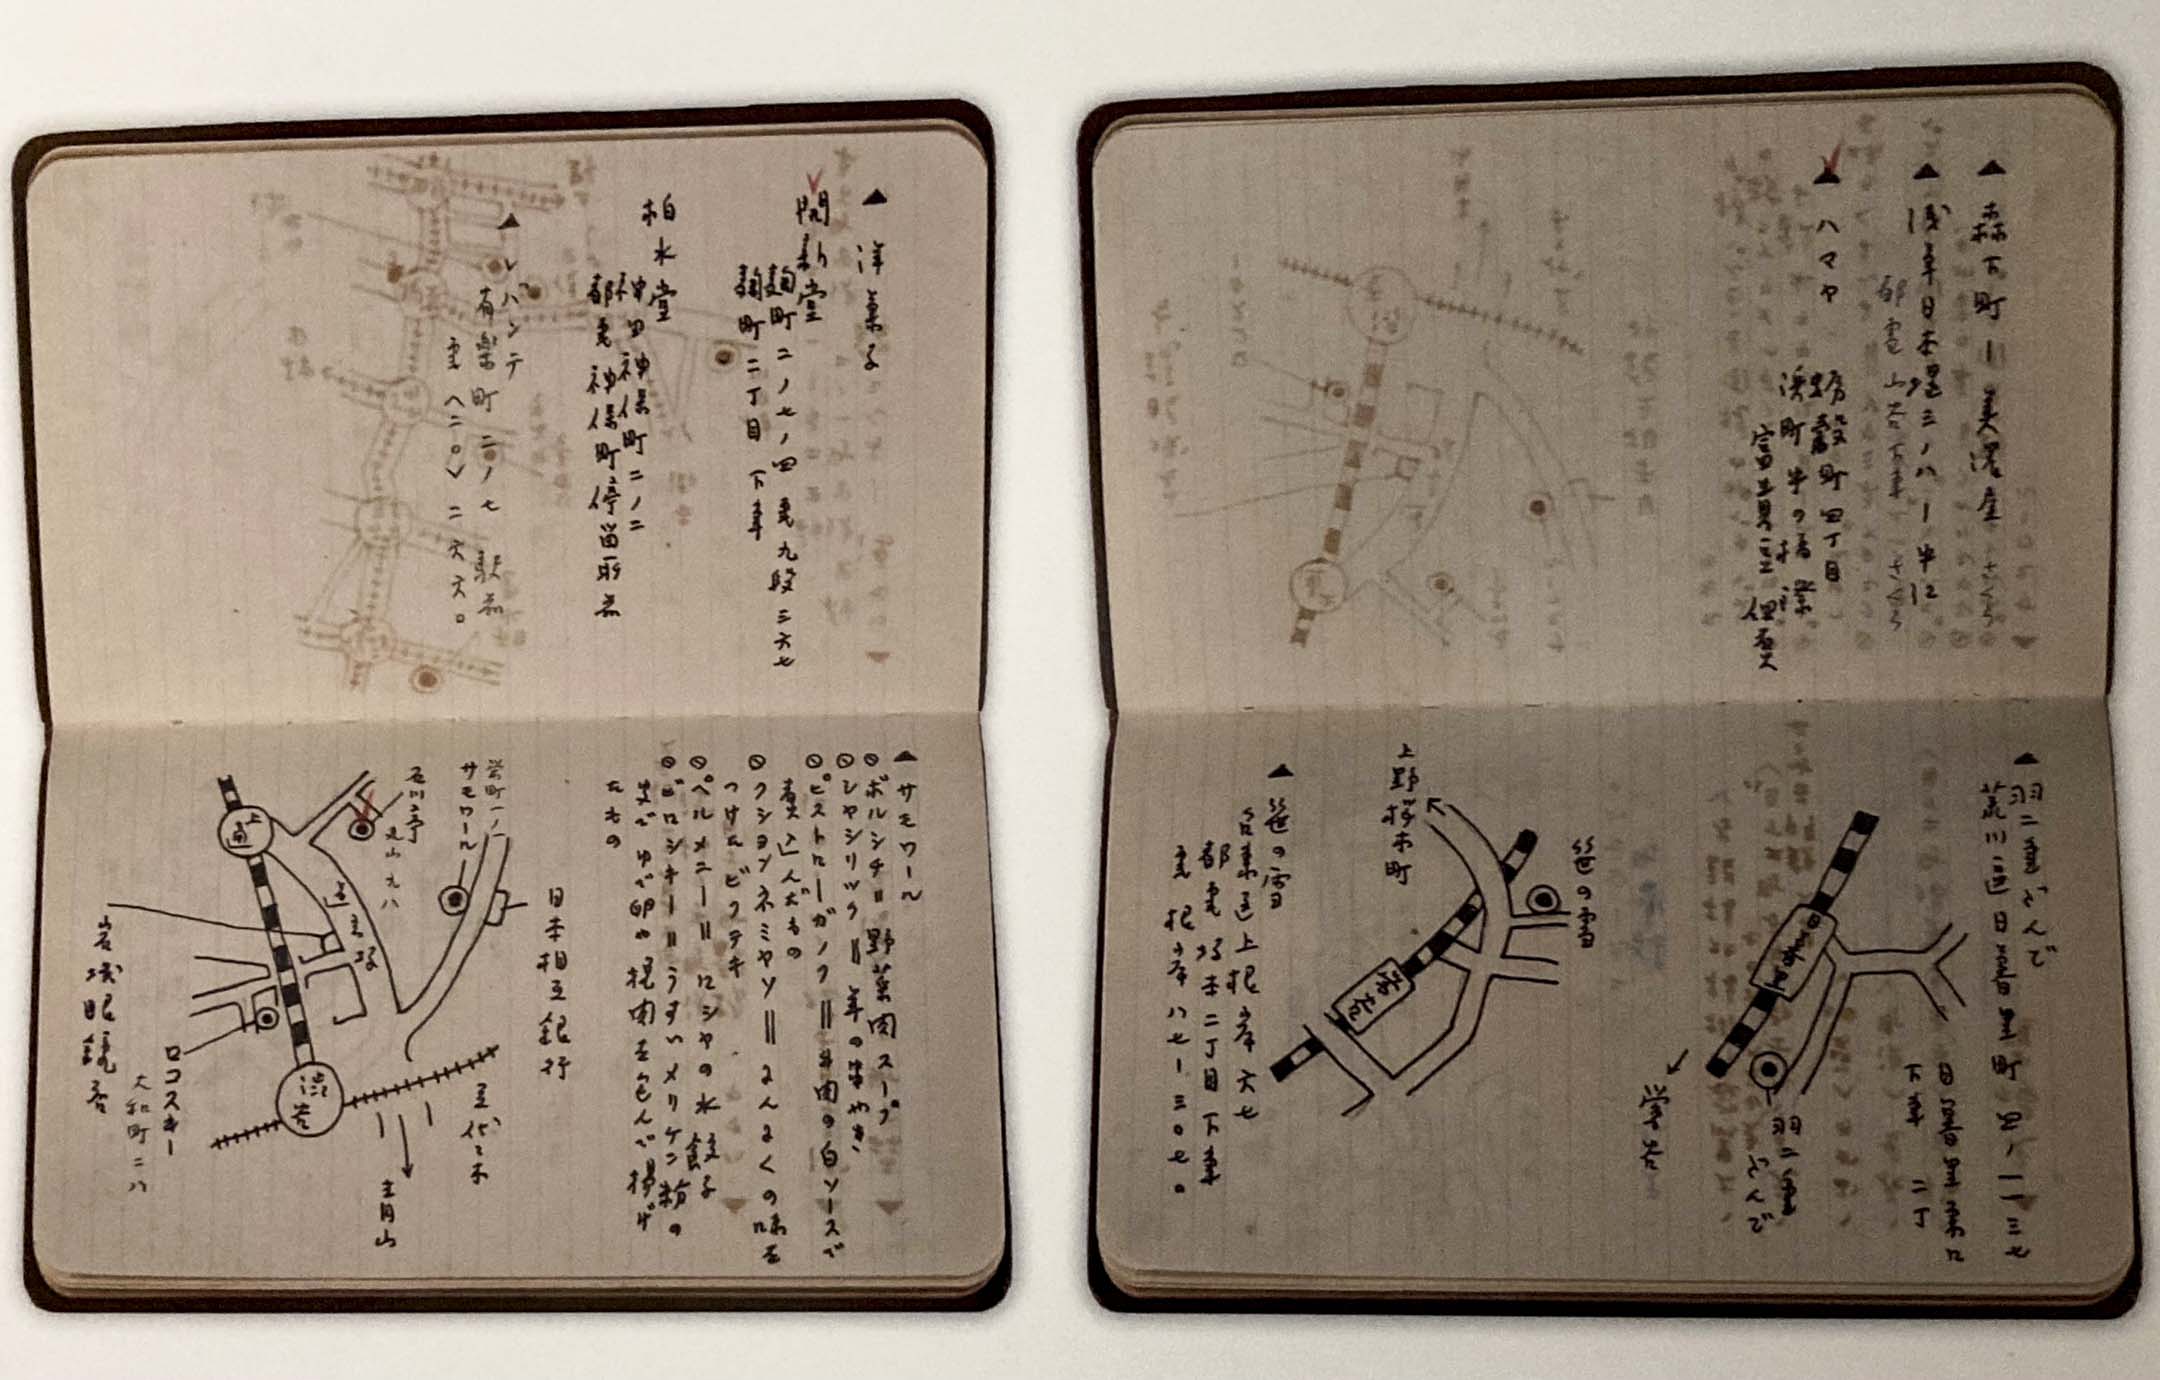 ▲洋菓子
開新堂
麹町二ノ七ノ四 電九段三六七
麹町二丁目下車
柏水堂
神田神保町二ノ二
都電神保町停留所前
▲レバンテ
有楽町二ノ七 駅前
電〈二〇〉二六六〇
▲サモワール
ボルシチ=野菜肉スープ
シャシリック=羊の串やき
ビストローガノフ=牛肉の白ソースで
煮込んだもの
クションネミヤソ=にんにくの味を
つけたビフテキ
ペルメニー=ロシヤの水餃子
ピロシキー=うすいメリケン粉の
皮でゆで卵や挽肉をくんで揚げ
たもの
栄町一ノ一
サモワール
石川亭
丸山九八
上通
道玄坂
日本相互銀行
渋谷
至代々木
青山
ロコスキー
大和町二八
岩城眼鏡舎
▲森下町ー美濃屋
▲浅草日本堤三ノ八ー中江
都電山谷下車
▲ハマヤ
蛎殻町四丁目
浜町中の橋際
▲羽二重だんご
荒川区日暮里町四ノ一一三七
日暮里東口
下車 二丁
日暮里
羽二重
だんご
鶯谷
笹の雪
上野桜木町
鶯谷
▲笹の雪
台東区上根岸六七
都電坂本二丁目下車
電根岸八七ー三〇七〇